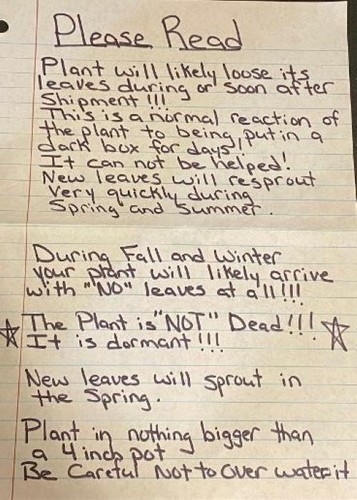 Please Read
Plant will likely loose its
leaves during or soon after
Shipment!!!
This is a normal reaction of
the plant to being put in a
dark box for days!!
It can not be helped!
New leaves will resprout
Very quickly during
Spring and Summer.
During Fall and Winter
your plant will likely arrive
with "NO" leaves at all!!!
The Plant is "NOT" Dead!!!
It is dormant!!!
New leaves will sprout in
the Spring.
Plant in nothing bigger than
a 4 inch pot
Be Careful Not to Over water it